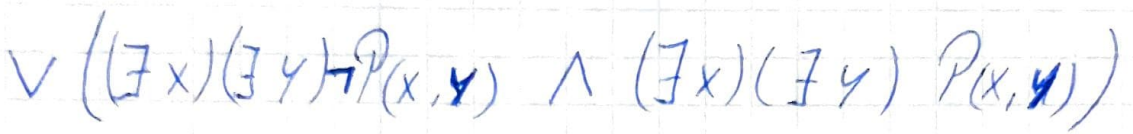 ∨ ((∃x)(∃y)¬P(x,y) ∧ (∃x)(∃y) P(x,y))